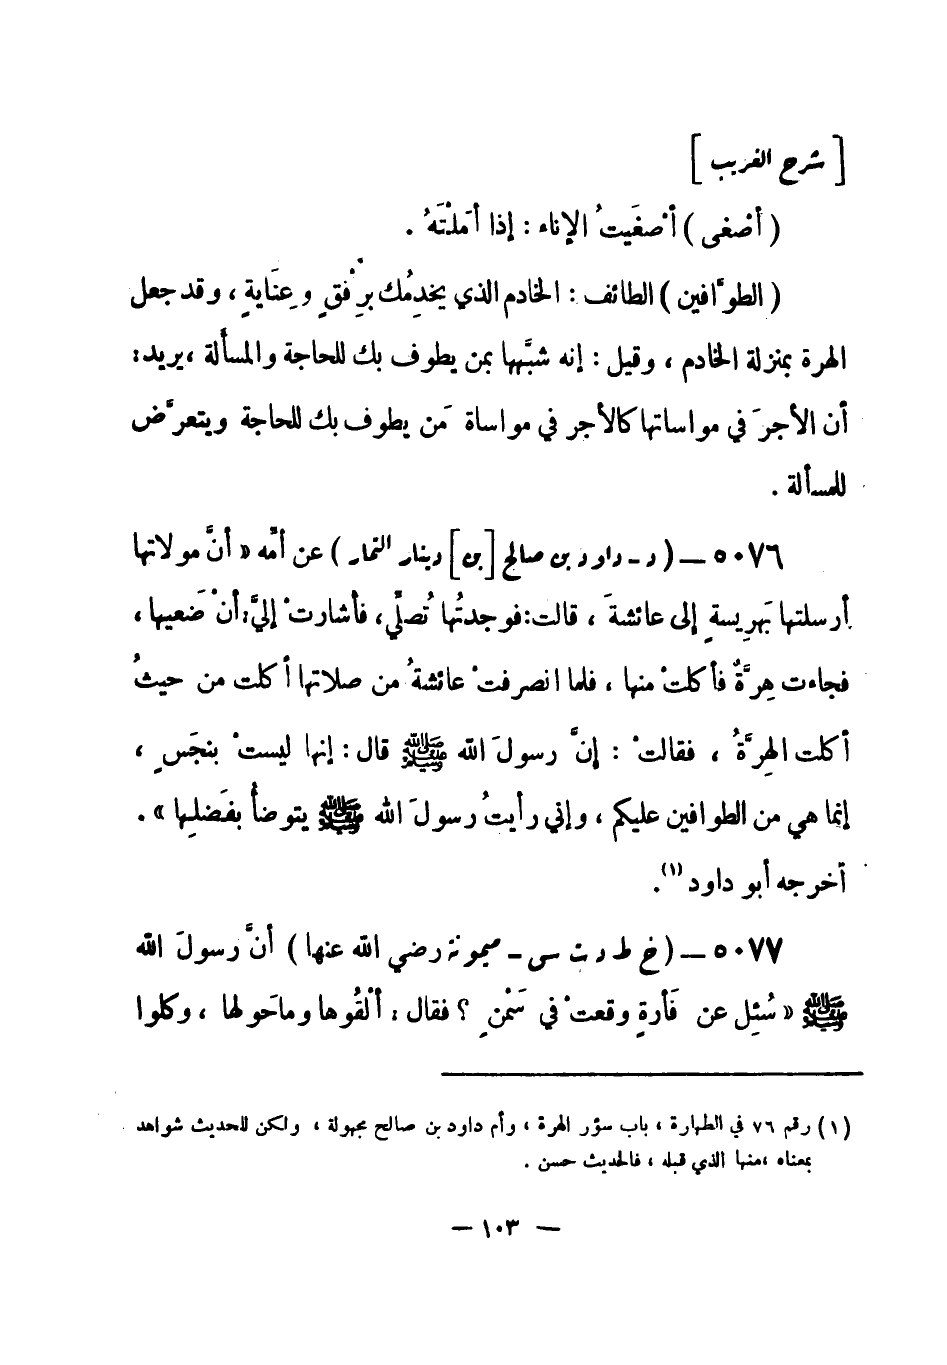 [ شرح الغريب ]
( أصْغى ) أصْغَيتُ الإناء : إذا أمَلْتَهُ .
( الطوَّافين ) الطائف : الخادم الذي يخدِمُك برِفْقٍ وعِنَايةٍ ، وقد جعل
الهرة بمنزلة الخادم ، وقيل : إنه شبَّهها بمن يطوف بك للحاجة والمسألة ، يريد :
أن الأجرَ في مواساتها كالأجر في مواساة مَن يطوف بك للحاجة ويتعرَّض
للمسألة .
٥٠٧٦ – ( د - داود بن صالح [بن] دينار التمار ) عن أمِّه « أنَّ مولاتها
أرسلتها بَهرِيسةٍ إلى عائشةَ ، قالت : فوجدتُها تُصلِّي ، فأشارتْ إليَّ : أنْ ضَعيها ،
فجاءت هِرَّةٌ فأكلتْ منها ، فلما انصرفتْ عائشةُ من صلاتها أكلت من حيثُ
أكلت الهِرَّةُ ، فقالتْ : إنَّ رسولَ الله ﷺ قال : إنها ليستْ بنجَسٍ ،
إنما هي من الطوافين عليكم ، وإني رأيتُ رسولَ الله ﷺ يتوضأُ بفَضلِها » .
أخرجه أبو داود (١).
٥٠٧٧ – ( خ ط د ت س - ميمونة رضي الله عنها ) أنَّ رسولَ الله
ﷺ « سُئِل عن فَأرةٍ وقعتْ في سَمْنٍ ؟ فقال : ألْقُوها وماحَولها ، وكلوا
(١) رقم ٧٦ في الطهارة ، باب سؤر الهرة ، وأم داود بن صالح مجهولة ، ولكن للحديث شواهد
بمعناه ، منها الذي قبله ، فالحديث حسن .
– ١٠٣ –